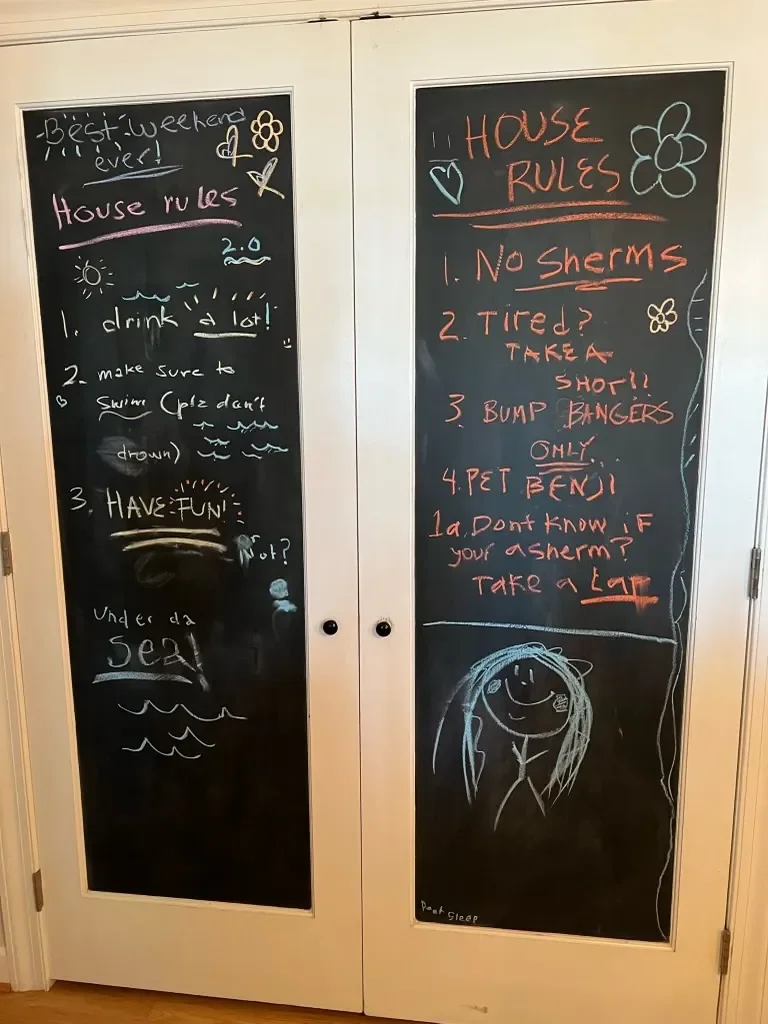 Best weekend
ever!
House rules
2.0
1. drink a lot!
2. make sure to
swim (plz don't
drown)
3. HAVE FUN!
Not?
Under da
Sea!
HOUSE
RULES
1. No Sherms
2. Tired?
TAKE A
SHOT!!
3 BUMP BANGERS
ONLY
4. PET BENJI
1a. Dont know iF
your a sherm?
Take a Lap
Dont Sleep